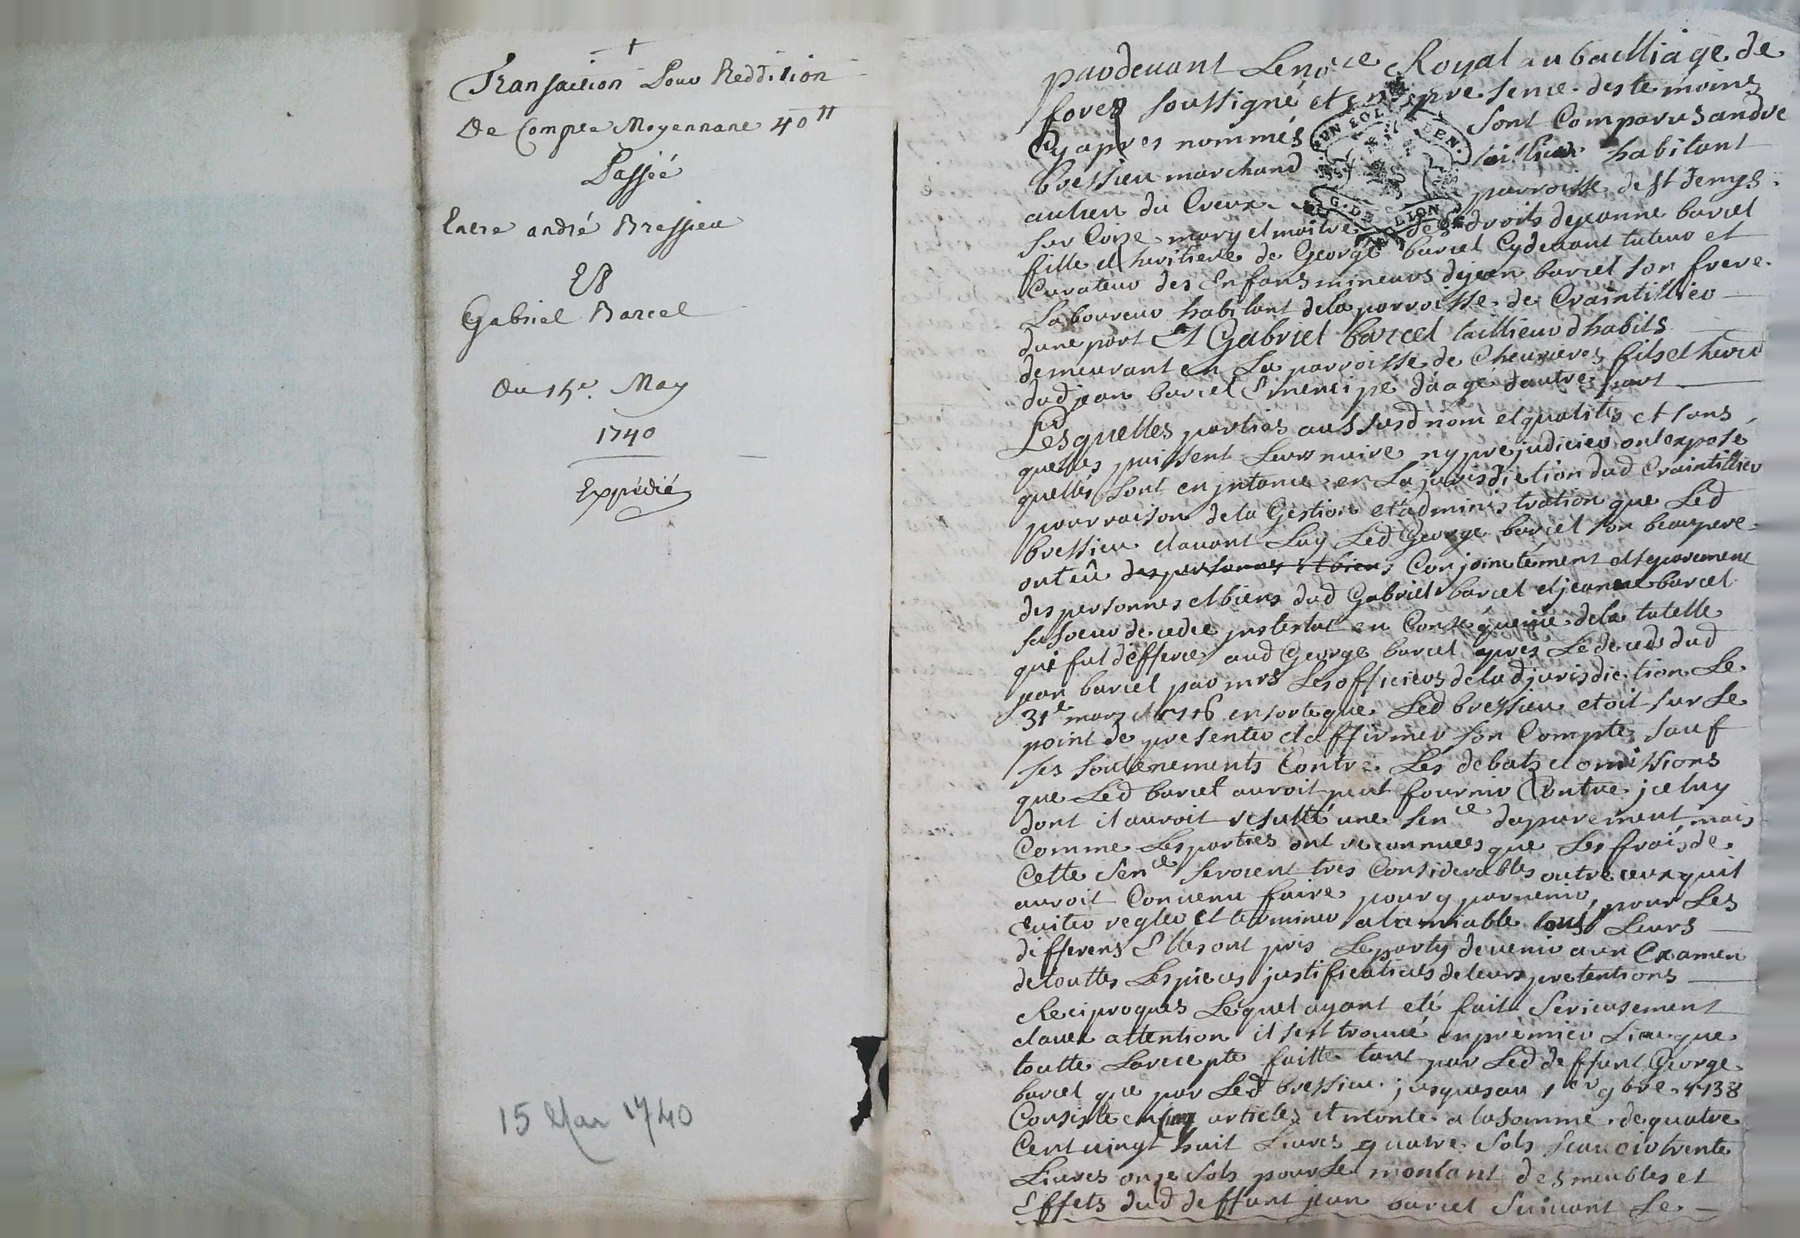 Transaction Pour Reddition
De Compte Moyennant 40ᵗᵗ
Passée
Entre andré Bressieu
Et
Gabriel Barcel
Du 15e. May
1740
Expédié
15 Mai 1740
pardevant Le noʳᵉ Royal au bailliage de
forez soussigné et en presence des temoins
Cy apres nommés Sont Comparus andre
bressieu marchand taillieur habitant
au lieu du Creux parroisse de St Denys
sur Coize mary et maitre des droits de jeanne barcel
fille et heritiere de George barcel Cy devant tuteur et
Curateur des Enfans mineurs de jean barcel son frere
Laboureur habitant de la parroisse de Craintillieu
dune part Et Gabriel barcel taillieur dhabits
demeurant en La parroisse de Chevrieres fils et herit
dud jean barcel Emencipé dâage dautre part
Lesquelles parties aus susd nom et qualités et sans
quelles puissent Leurs nuire ny prejudicier ont exposé
quelles sont en jnstance en La jurisdiction dud Craintillieu
pour raison de la Gestion et administration que Led
bressieu et avant Luy Led George barcel son beaupere
ont eû des personnes et biens Conjointement et separement
des personnes et biens dud Gabriel barcel et jeanne barcel
sa soeur decedée jntestat en Consequence de la tutelle
qui fut defferée aud George barcel apres Le deced dud
jean barcel par mrs Les officiers de lad jurisdiction Le
31e mars 1716 en sorte que Led bressieu etoit sur Le
point de presenter et affirmer son Compte sauf
ses soutenements Contre Les debats et omissions
que Led barcel auroit peut fournir Contre jceluy
dont il auroit resulté une senᶜᵉ dapurement mais
Comme Les parties ont reconnues que Les frais de
Cette Senᶜᵉ seroient tres Considerables outre ceux quil
auroit Convenu faire pour y parvenir, pour Les
Eviter regler et terminer a lamiable tous Leurs
differens Elles ont pris Le party de venir a un Examen
de touttes Les pieces justificatives de leurs pretentions
Reciproques Lequel ayant eté fait Serieusement
et avec attention il sest trouvé en premier Lieu que
toutte La recepte faitte tant par Led deffunt George
barcel que par Led bressieu jusques au 1er 9bre 1738
Consiste en articles et monte a la somme de quatre
Cent vingt huit Livres quatre sols trente
Livres onze sols pour Le montant des meubles et
Effets dud deffunt jean barcel Suivant Le